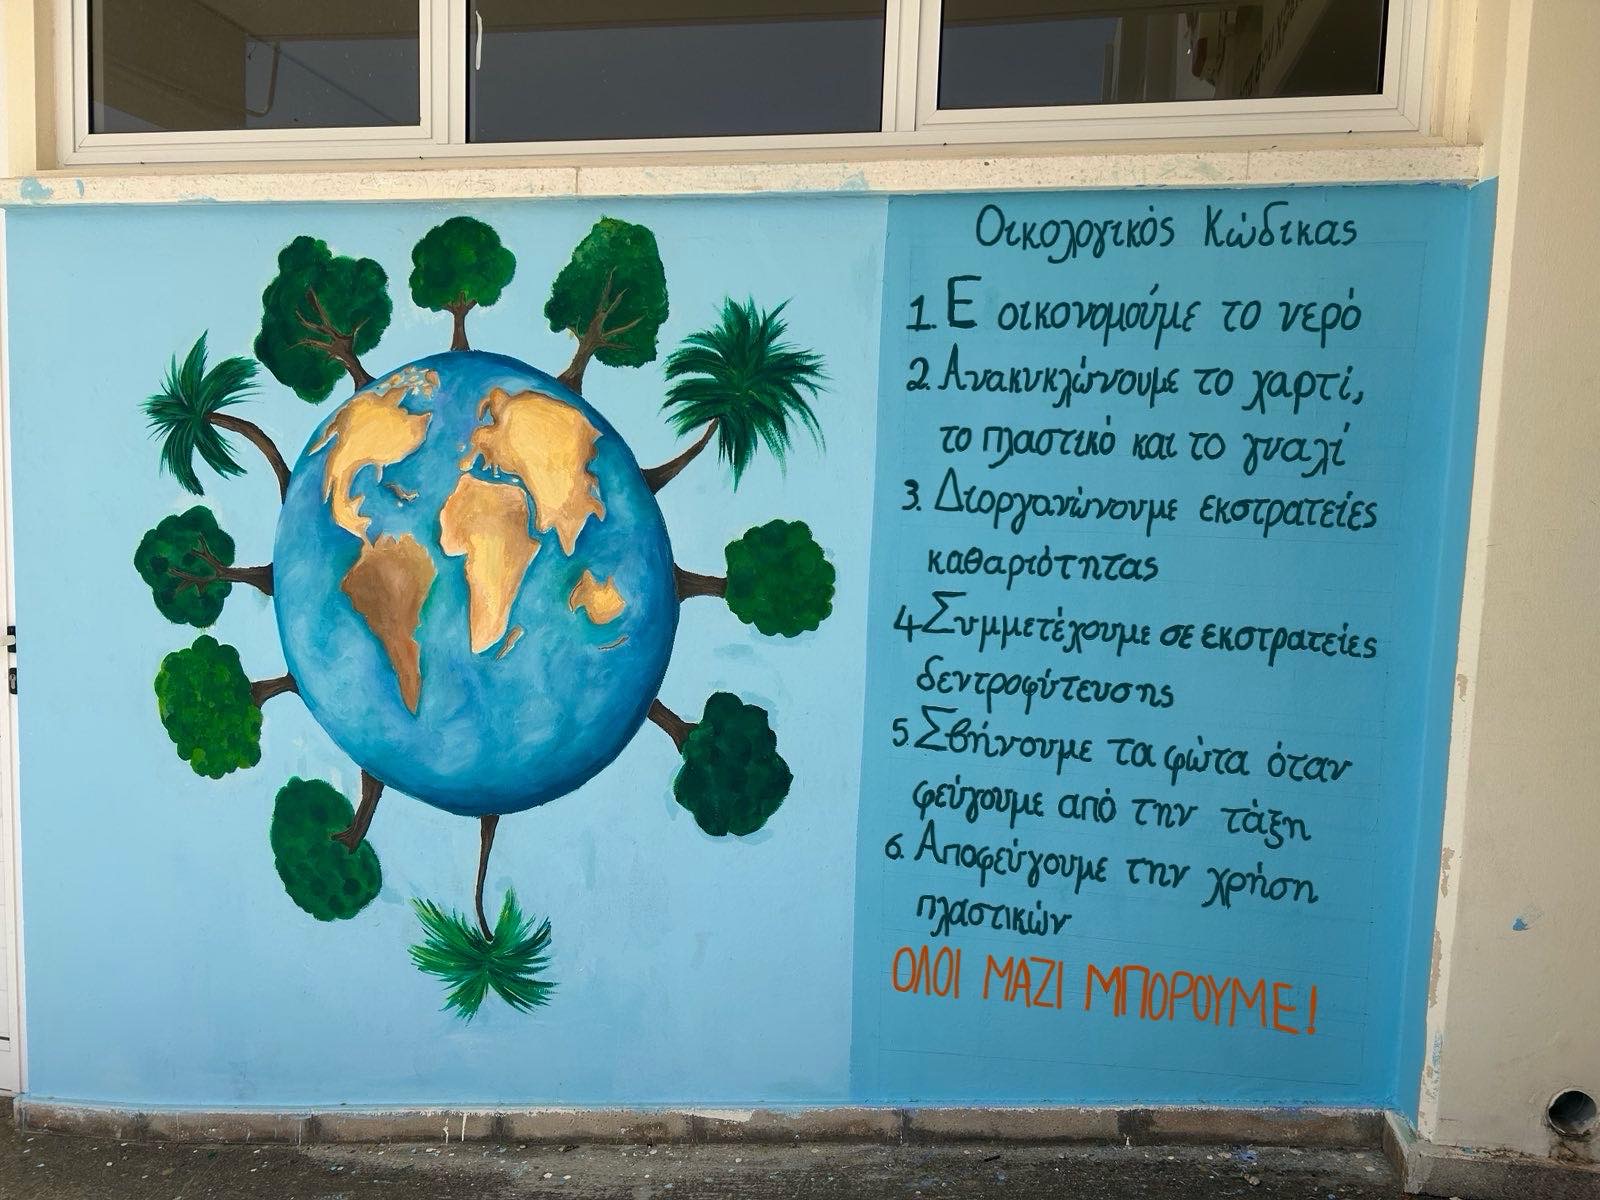 Οικολογικός Κώδικας
1. Εξοικονομούμε το νερό
2. Ανακυκλώνουμε το χαρτί,
το πλαστικό και το γυαλί
3. Διοργανώνουμε εκστρατείες
καθαριότητας
4 Συμμετέχουμε σε εκστρατείες
δεντροφύτευσης
5. Σβήνουμε τα φώτα όταν
φεύγουμε από την τάξη
6. Αποφεύγουμε την χρήση
πλαστικών
ΟΛΟΙ ΜΑΖΙ ΜΠΟΡΟΥΜΕ!